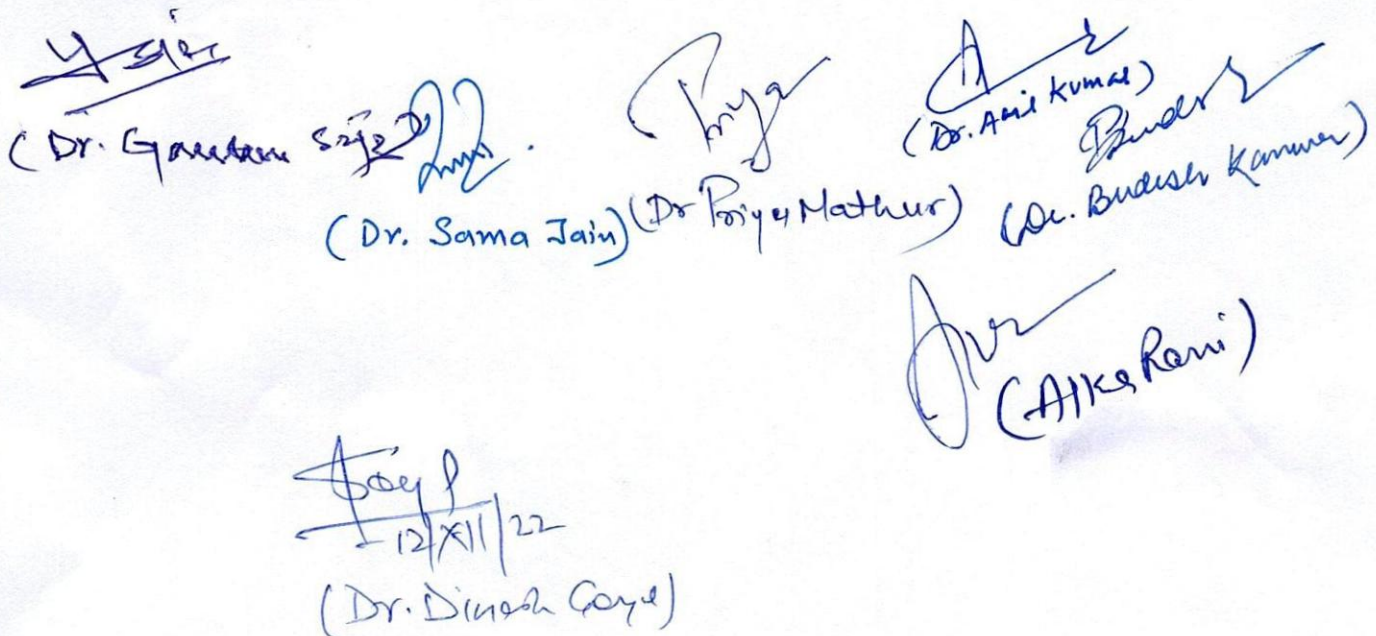 (Dr. Gautam
(Dr. Sama Jain)
Priya
(Dr Priya Mathur)
(Dr. Anil Kumar)
(Dr. Budesh Kanwer)
(Alka Rani)
Goyal
12/XII/22
(Dr. Dinesh Goyal)